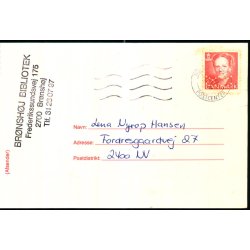 BRØNSHØJ BIBLIOTEK
Frederikssundsvej 175
2700 Brønshøj
Tlf. 31 29 07 97
(Afsender)
POSTCENTER
Navn: Lena Nyrop Hansen
Adresse: Fordresgaardvej 27
Postdistrikt: 2400 NV